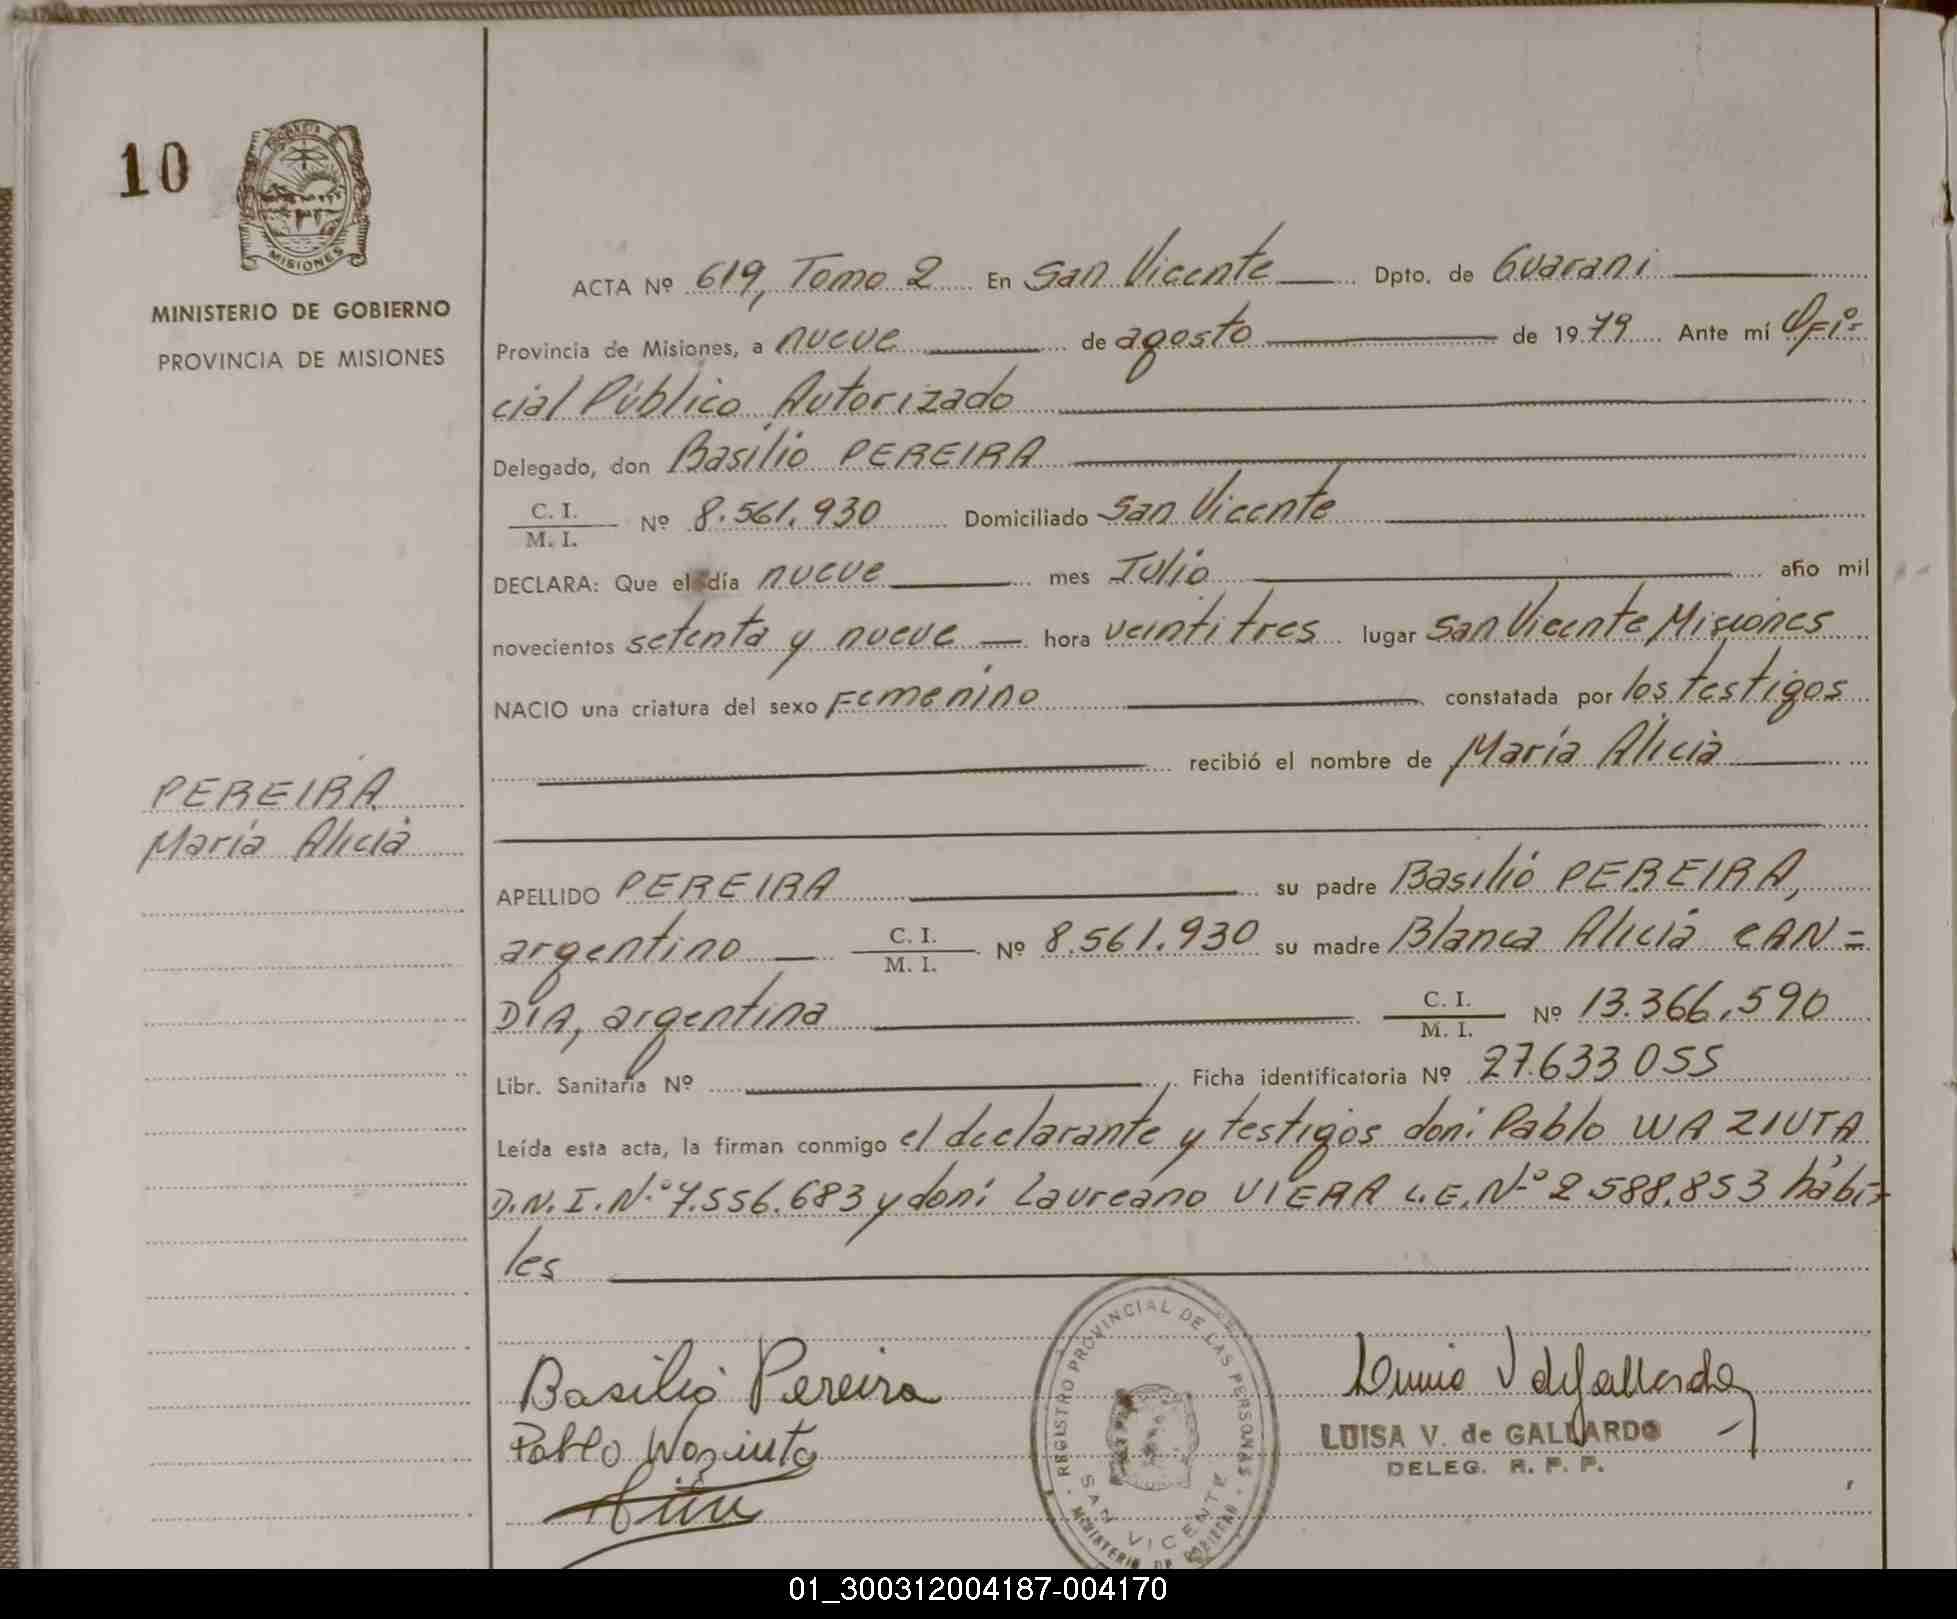 10
MISIONES
MINISTERIO DE GOBIERNO
PROVINCIA DE MISIONES
PEREIRA
María Alicia
ACTA Nº 619, Tomo 2 En San Vicente Dpto. de Guaraní
Provincia de Misiones, a nueve de agosto de 1979 Ante mí Ofi=
cial Público Autorizado
Delegado, don Basilio PEREIRA
C. I.
M. I. Nº 8.561.930 Domiciliado San Vicente
DECLARA: Que el día nueve mes Julio año mil
novecientos setenta y nueve hora veintitres lugar San Vicente Misiones
NACIO una criatura del sexo Femenino constatada por los testigos
recibió el nombre de María Alicia
APELLIDO PEREIRA su padre Basilio PEREIRA,
argentino C. I.
M. I. Nº 8.561.930 su madre Blanca Alicia CAN=
DIA, argentina C. I.
M. I. Nº 13.366.590
Libr. Sanitaria Nº Ficha identificatoria Nº 27.633055
Leída esta acta, la firman conmigo el declarante y testigos don: Pablo WAZIUTA
D.N.I. Nº 7.556.683 y don: Laureano VIERA L.E. Nº 2.588.853 hábi=
les
Basilio Pereira
Pablo Waziuta
REGISTRO PROVINCIAL DE LAS PERSONAS
SAN VICENTE
MINISTERIO DE GOBIERNO
LUISA V. de GALLARDO
DELEG. R. P. P.
01_300312004187-004170